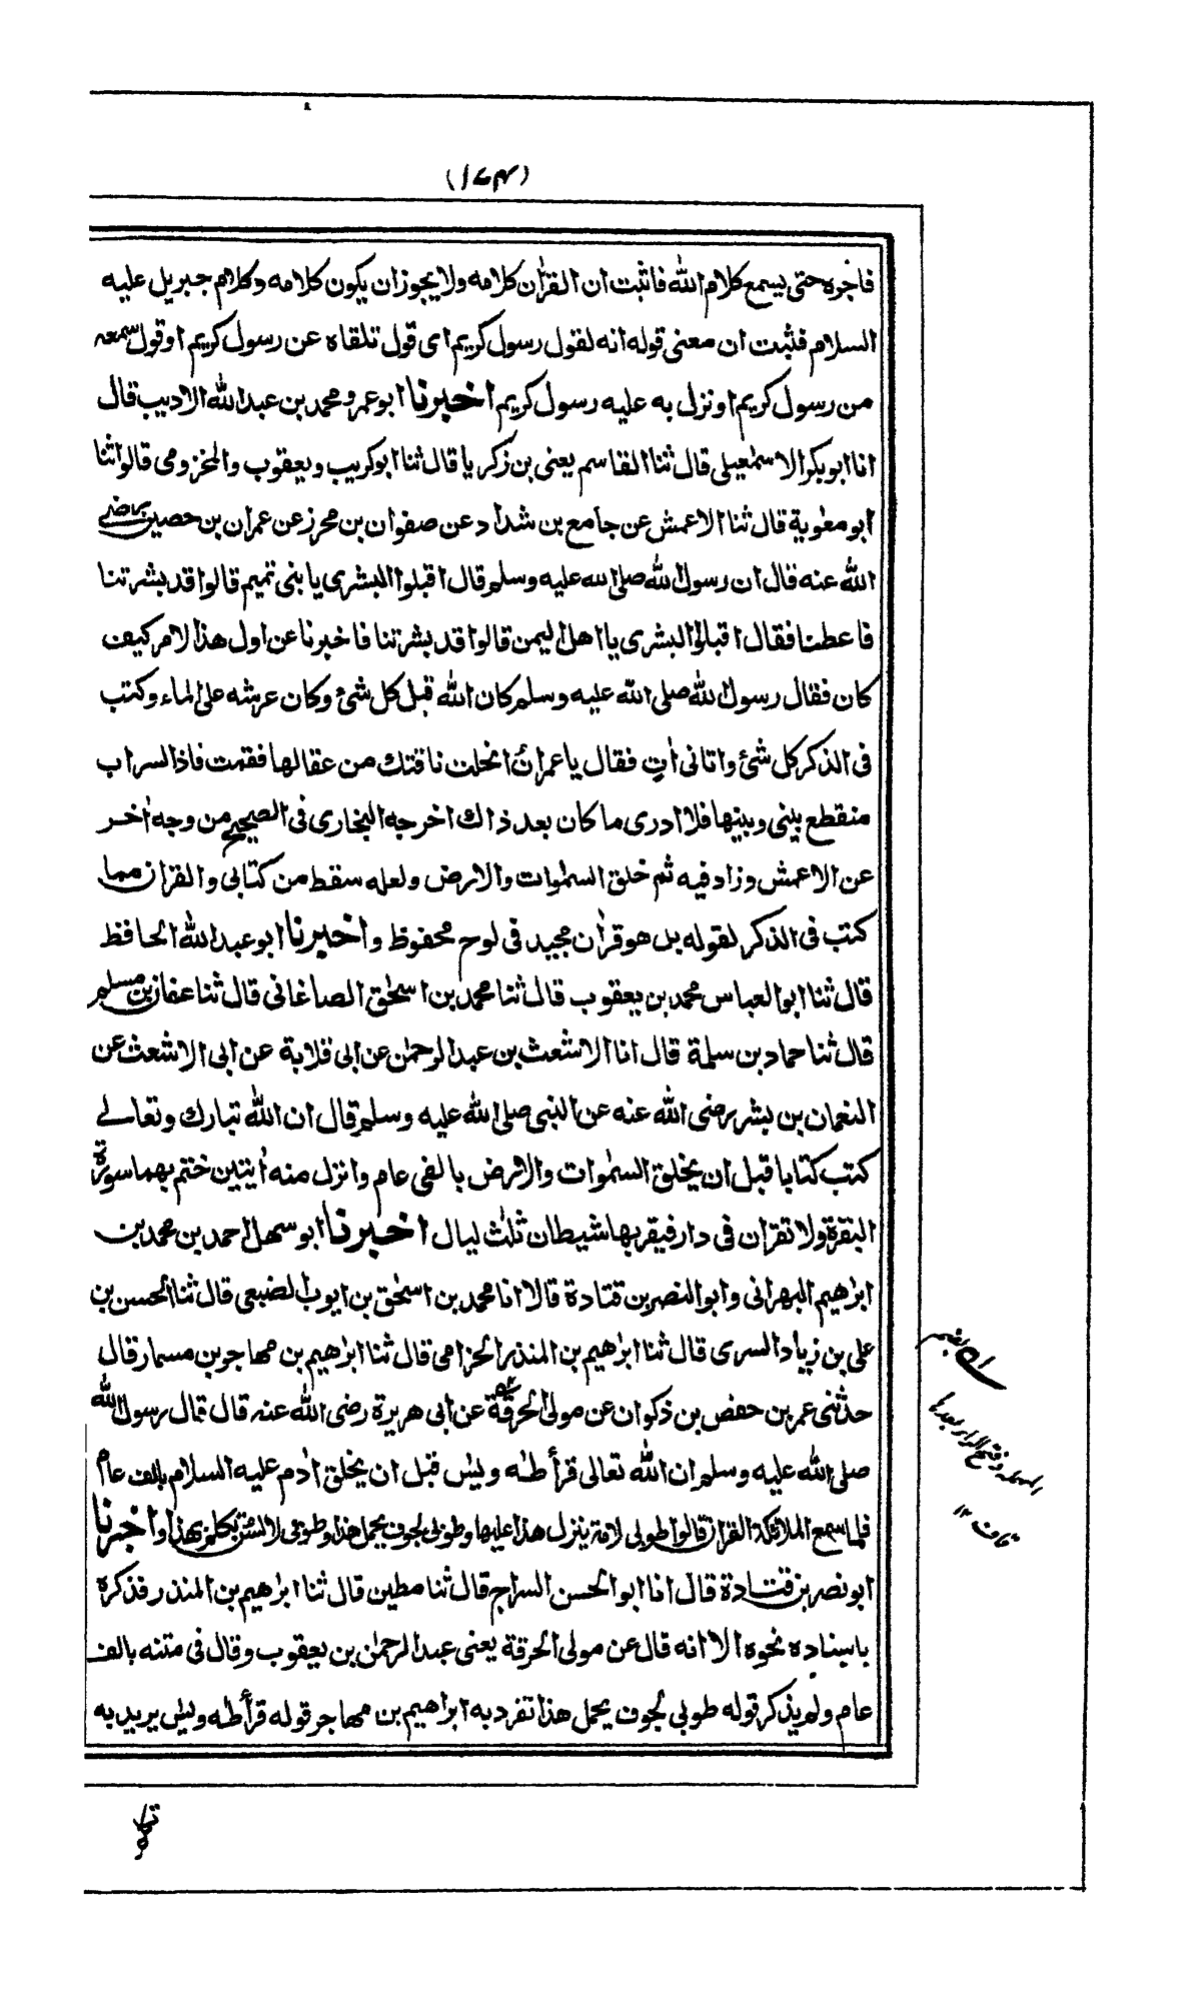 (١٧٤)
فاجره حتى يسمع كلام الله فاثبت ان القرأن كلامه ولا يجوز ان يكون كلامه وكلام جبريل عليه
السلام فثبت ان معنى قوله انه لقول رسول كريم اى قول تلقاه عن رسول كريم او قول سمعه
من رسول كريم او نزل به عليه رسول كريم اخبرنا ابو عمرو محمد بن عبد الله الاديب قال
انا ابو بكر الاسمٰعيلى قال ثنا القاسم يعنى بن زكريا قال ثنا ابو كريب ويعقوب والمخزومى قالوا ثنا
ابو معٰوية قال ثنا الاعمش عن جامع بن شداد عن صفوان بن محرز عن عمران بن حصين رضى
الله عنه قال ان رسول الله صلى الله عليه وسلم قال اقبلوا البشرى يا بنى تميم قالوا قد بشرتنا
فاعطنا فقال اقبلوا البشرى يا اهل اليمن قالوا قد بشرتنا فاخبرنا عن اول هذا الامر كيف
كان فقال رسول الله صلى الله عليه وسلم كان الله قبل كل شئ وكان عرشه على الماء وكتب
فى الذكر كل شئ واتانى اٰتٍ فقال يا عمران انحلت ناقتك من عقالها فقمت فاذا السراب
منقطع بينى وبينها فلا ادرى ما كان بعد ذاك اخرجه البخارى فى الصحيح من وجه اٰخر
عن الاعمش وزاد فيه ثم خلق السمٰوات والارض ولعله سقط من كتابى والقراٰن مما
كتب فى الذكر لقوله بل هو قراٰن مجيد فى لوح محفوظ واخبرنا ابو عبد الله الحافظ
قال ثنا ابو العباس محمد بن يعقوب قال ثنا محمد بن اسحٰق الصاغانى قال ثنا عفان بن مسلم
قال ثنا حماد بن سلمة قال انا الاشعث بن عبد الرحمٰن عن ابى قلابة عن ابى الاشعث عن
النعمان بن بشير رضى الله عنه عن النبى صلى الله عليه وسلم قال ان الله تبارك وتعالے
كتب كتابا قبل ان يخلق السمٰوات والارض بالفى عام وانزل منه اٰيتين ختم بهما سورة
البقرة ولا تقرأن فى دار فيقربها شيطان ثلٰث ليال اخبرنا ابو سهل احمد بن محمد بن
ابرٰهيم المهرانى وابو النصر بن قتادة قالا انا محمد بن اسحٰق بن ايوب الضبعى قال ثنا الحسن بن
على بن زياد السرى قال ثنا ابرٰهيم بن المنذر الحزامى قال ثنا ابرٰهيم بن مهاجر بن مسمار قال
حدثنى عمر بن حفص بن ذكوان عن مولى الحرقة عن ابى هريرة رضى الله عنه قال قال رسول الله
صلى الله عليه وسلم ان الله تعالى قرأ طه ويٰس قبل ان يخلق اٰدم عليه السلام بالف عام
فلما سمع الملائكة القراٰن قالوا طوبى لامة ينزل هذا عليها وطوبى لجوف يحمل هذا وطوبى لالسن تكلم بهذا واخبرنا
ابو نصر بن قتادة قال انا ابو الحسن السراج قال ثنا مطين قال ثنا ابرٰهيم بن المنذر فذكره
باسناده نحوه الا انه قال عن مولى الحرقة يعنى عبد الرحمٰن بن يعقوب وقال فى متنه بالف
عام ولم يذكر قوله طوبى لجوف يحمل هذا تفرد به ابراهيم بن مهاجر قوله قرأ طه ويٰس يريد به
بالضم
المهملة وفتح الراء بعدها
قاف ١٢